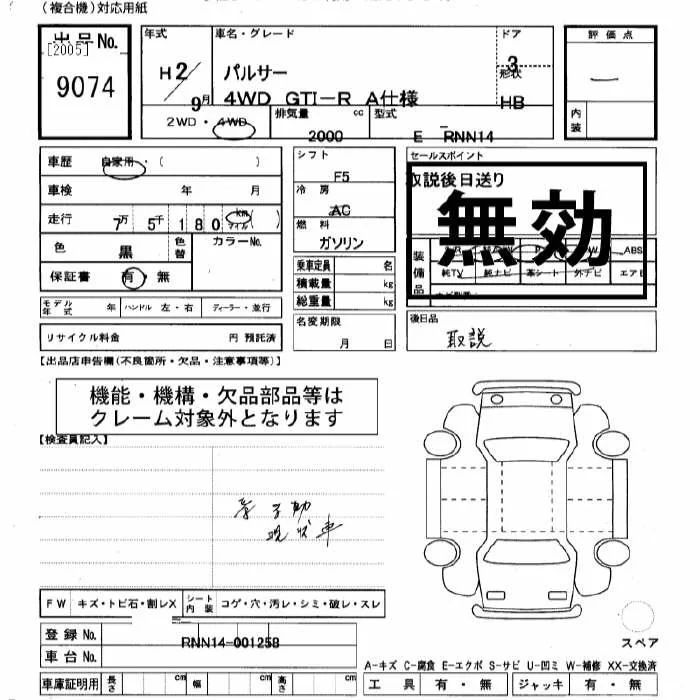 (複合機)対応用紙
出品No. [2005] 9074
年式 H2/9月
車名・グレード パルサー
4WD GTI-R A仕様
ドア 3
形状 HB
評価点 —
内装
2WD・4WD
排気量 cc 2000
型式 E RNN14
車歴 自家用・( )
車検 年 月
走行 7万5千180 km マイル ( )
色 黒 色替 カラーNo.
保証書 有・無
シフト F5
冷房 AC
燃料 ガソリン
乗車定員 名
積載量 kg
総重量 kg
セールスポイント
取説後日送り
無効
装備品
ABS
純TV 純ナビ 革シート 外ナビ エアB
モデル年式 年 ハンドル 左・右 ディーラー・並行
リサイクル料金 円 預託済
名変期限 月 日
後日品 取説
【出品店申告欄(不良箇所・欠品・注意事項等)】
機能・機構・欠品部品等は
クレーム対象外となります
【検査員記入】
現状車
FW キズ・トビ石・割レX シート内装 コゲ・穴・汚レ・シミ・破レ・スレ
登録No. RNN14-001258
車台No.
車庫証明用 長さ cm 幅 cm 高さ cm
スペア
A-キズ C-腐食 E-エクボ S-サビ U-凹ミ W-補修 XX-交換済
工具 有・無 ジャッキ 有・無